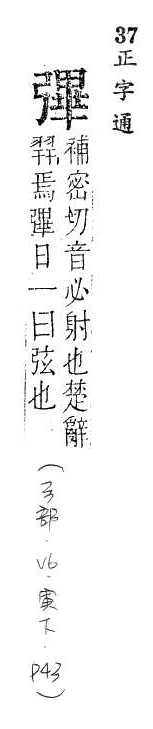 37
正字通
彃
補密切音必射也楚辭
羿焉彃日一曰弦也
(弓部.V6.寅下.P43)